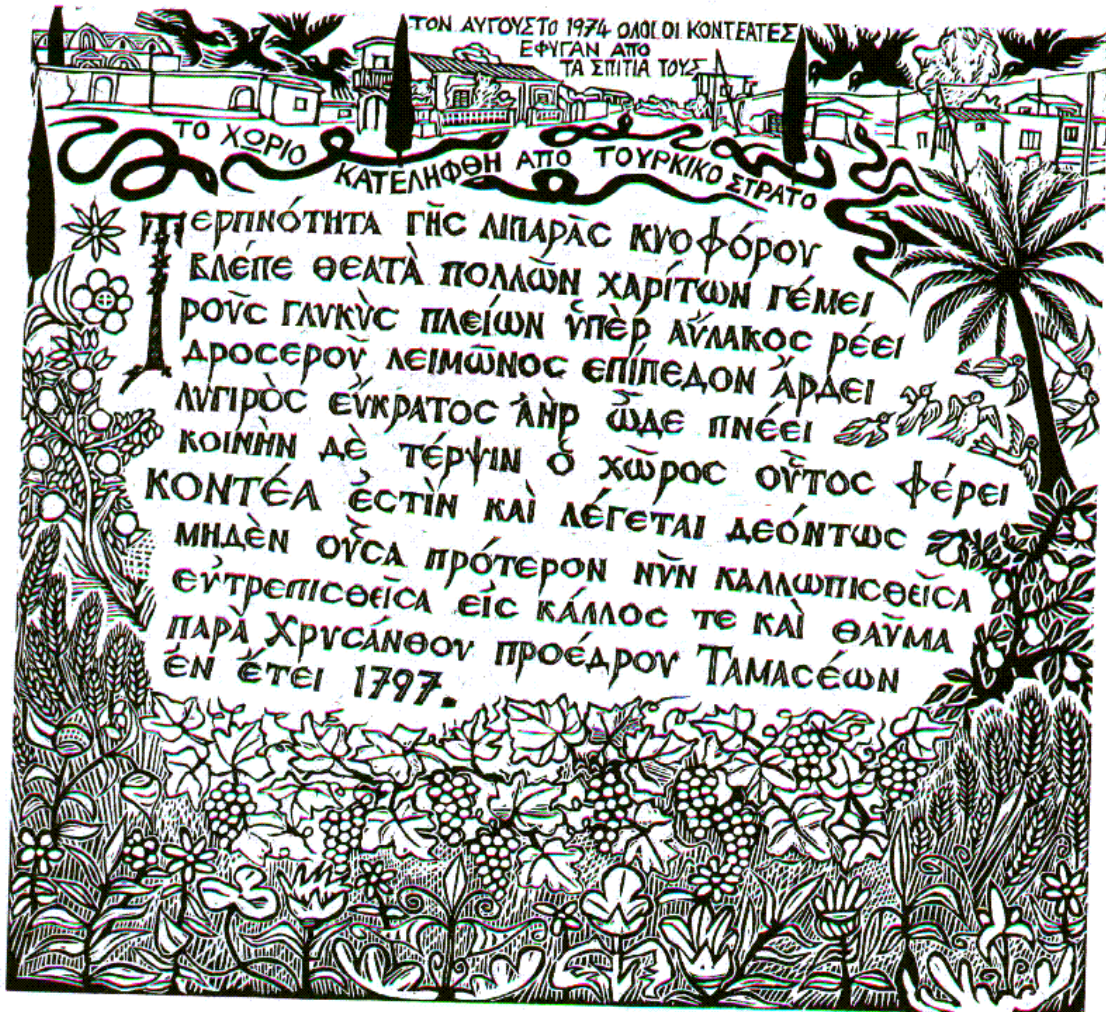 ΤΟΝ ΑΥΓΟΥΣΤΟ 1974 ΟΛΟΙ ΟΙ ΚΟΝΤΕΑΤΕΣ
ΕΦΥΓΑΝ ΑΠΟ
ΤΑ ΣΠΙΤΙΑ ΤΟΥΣ
ΤΟ ΧΩΡΙΟ
ΚΑΤΕΛΗΦΘΗ ΑΠΟ ΤΟΥΡΚΙΚΟ ΣΤΡΑΤΟ
ΤΕΡΠΝΌΤΗΤΑ ΓΗ͂Ϲ ΛΙΠΑΡᾶϹ ΚΥΟΦΌΡΟΥ
ΒΛΈΠΕ ΘΕΑΤᾺ ΠΟΛΛῶΝ ΧΑΡΊΤΩΝ ΓΈΜΕΙ
ΡΟῦϹ ΓΛΥΚῪϹ ΠΛΕΊΩΝ ὙΠῈΡ ΑὔΛΑΚΟϹ ΡΈΕΙ
ΔΡΟϹΕΡΟῦ ΛΕΙΜῶΝΟϹ ΕΠΊΠΕΔΟΝ ἌΡΔΕΙ
ΛΥΓΙΡῸϹ ΕὔΚΡΑΤΟϹ ἈῊΡ ὯΔΕ ΠΝΈΕΙ
ΚΟΙΝῊΝ ΔῈ ΤΈΡΨΙΝ Ὁ ΧῶΡΟϹ ΟὗΤΟϹ ΦΈΡΕΙ
ΚΟΝΤΈΑ ἘϹΤῚΝ ΚΑῚ ΛΈΓΕΤΑΙ ΔΕΌΝΤΩϹ
ΜΗΔῈΝ ΟὖϹΑ ΠΡΌΤΕΡΟΝ ΝῦΝ ΚΑΛΛΩΠΙϹΘΕῖϹΑ
ΕὐΤΡΕΠΙϹΘΕῖϹΑ ΕἰϹ ΚΆΛΛΟϹ ΤΕ ΚΑῚ ΘΑῦΜΑ
ΠΑΡᾺ ΧΡΥϹΆΝΘΟΥ ΠΡΟΈΔΡΟΥ ΤΑΜΑϹΈΩΝ
ἘΝ ἜΤΕΙ 1797.